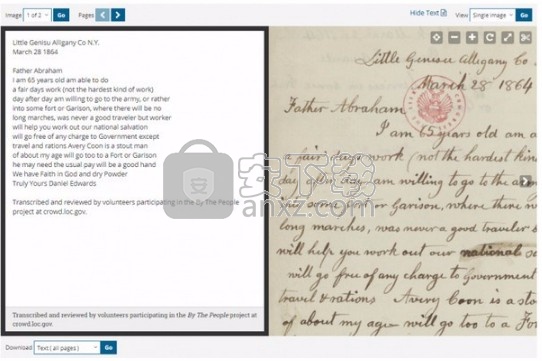 Image 1 of 2 Go Pages Hide Text View Single image Go
Little Genisu Alligany Co N.Y.
March 28 1864
Father Abraham
I am 65 years old am able to do
a fair days work (not the hardest kind of work)
day after day am willing to go to the army, or rather
into some fort or Garison, where there will be no
long marches, was never a good traveler but worker
will help you work out our national salvation
will go free of any charge to Government except
travel and rations Avery Coon is a stout man
of about my age will go too to a Fort or Garison
he may need the usual pay will be a good hand
We have Faith in God and dry Powder
Truly Yours Daniel Edwards
Transcribed and reviewed by volunteers participating in the By The People
project at crowd.loc.gov.
Transcribed and reviewed by volunteers participating in the By The People project at
crowd.loc.gov.
Download Text ( all pages ) Go
Little Genisee Allegany Co
March 28 1864
Father Abraham
I am 65 years old am a
a fair days work (not the hardest kin
day after day am willing to go to the arm
into some fort or Garison, where there w
long marches, was never a good traveler b
will help you work out our national sa
will go free of any charge to Government
travel & rations Avery Coon is a sto
of about my age will go too to a For
安下载
anxz.com